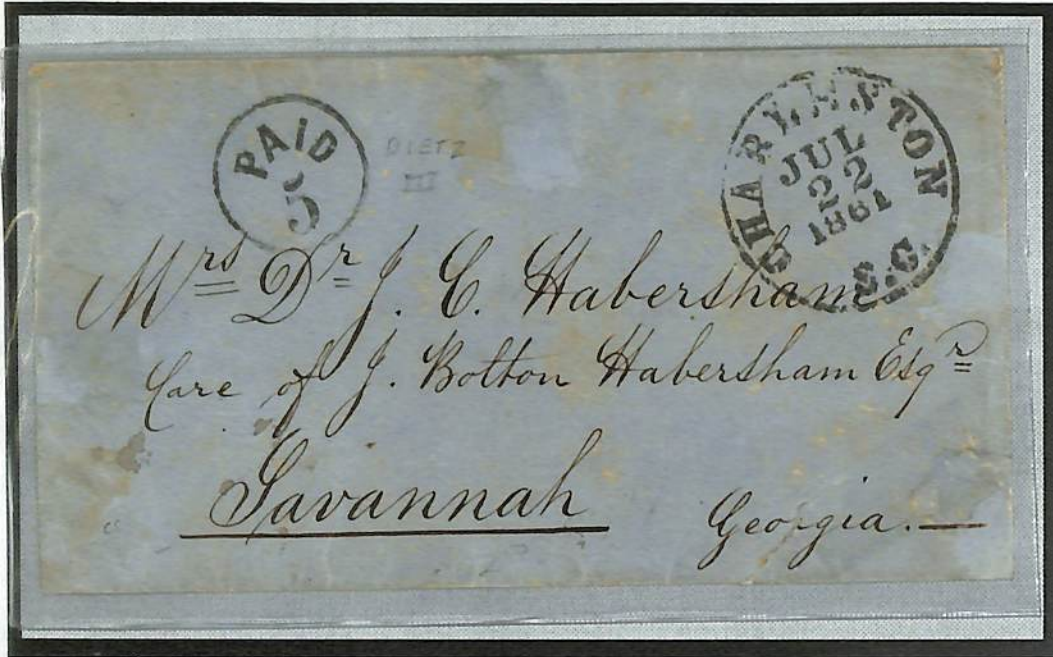 PAID
5
DIETZ
III
CHARLESTON
JUL
22
1861
S.C.
Mrs Dr J. C. Habersham
Care of J. Bolton Habersham Esqr
Savannah Georgia.